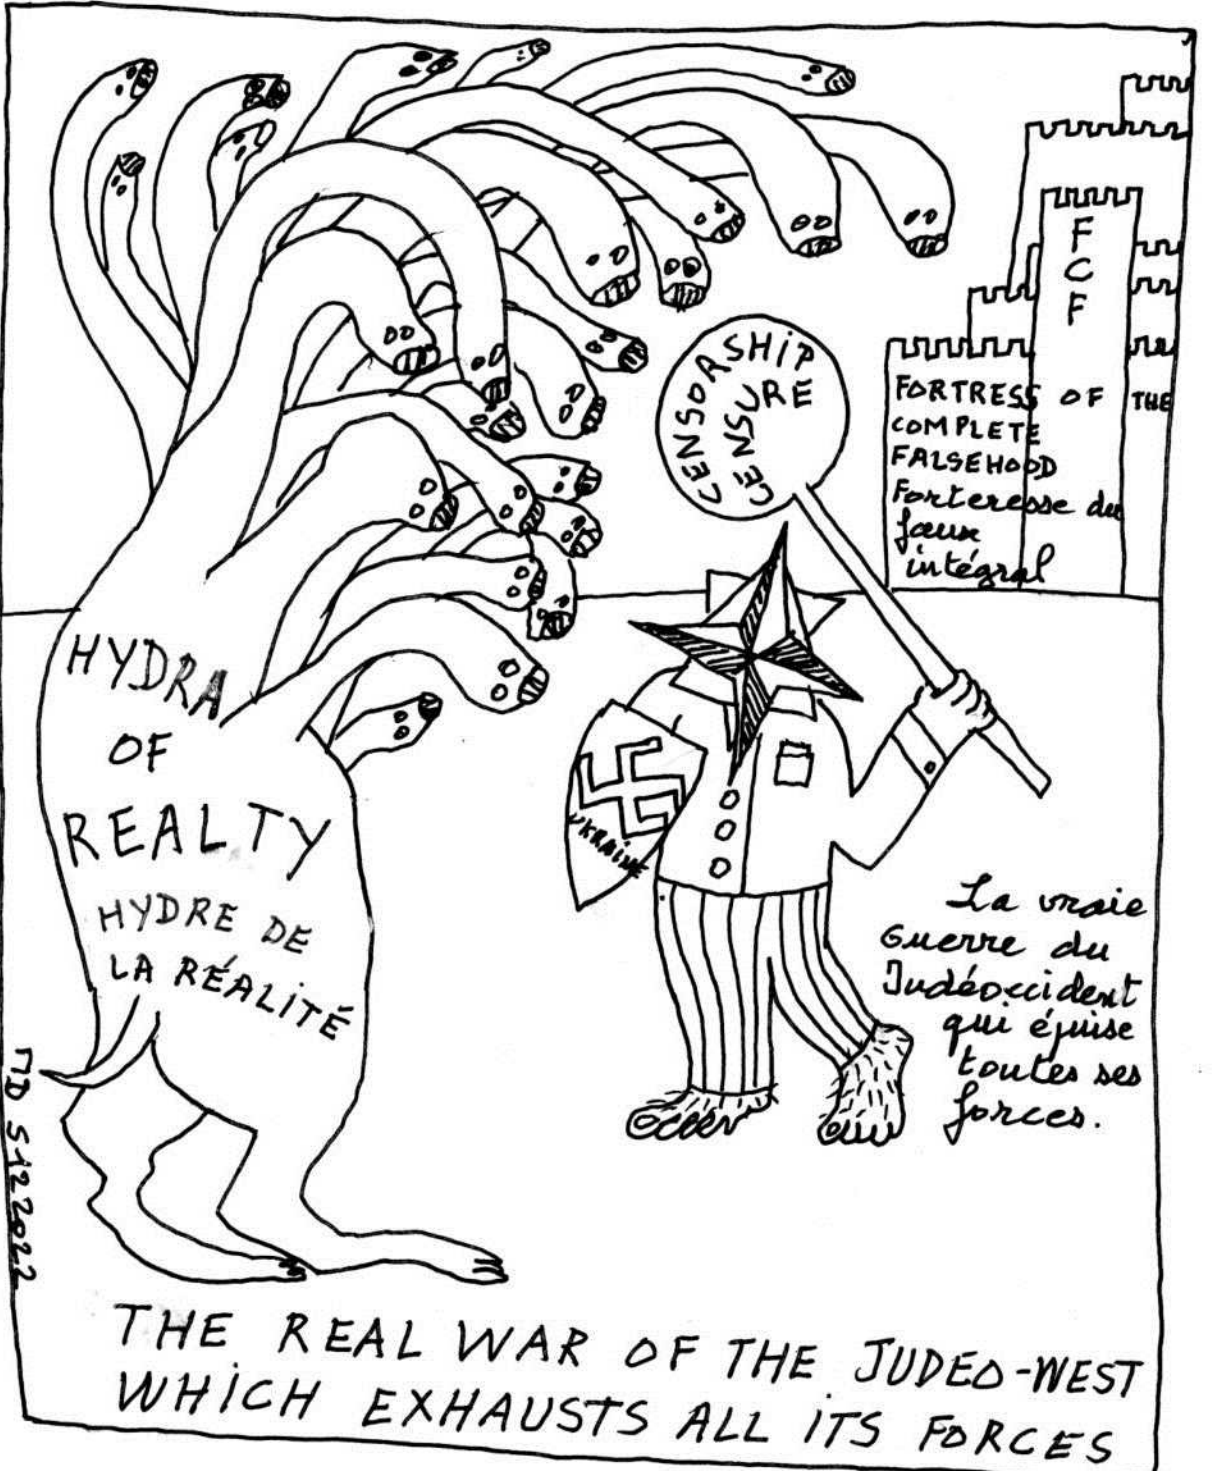 CENSORSHIP
CENSURE
FCF
FORTRESS OF THE
COMPLETE
FALSEHOOD
Forteresse du
faux
intégral
HYDRA
OF
REALTY
HYDRE DE
LA RÉALITÉ
UKRAINE
La vraie
Guerre du
Judéoccident
qui épuise
toutes ses
forces.
MD 5122022
THE REAL WAR OF THE JUDEO-WEST
WHICH EXHAUSTS ALL ITS FORCES